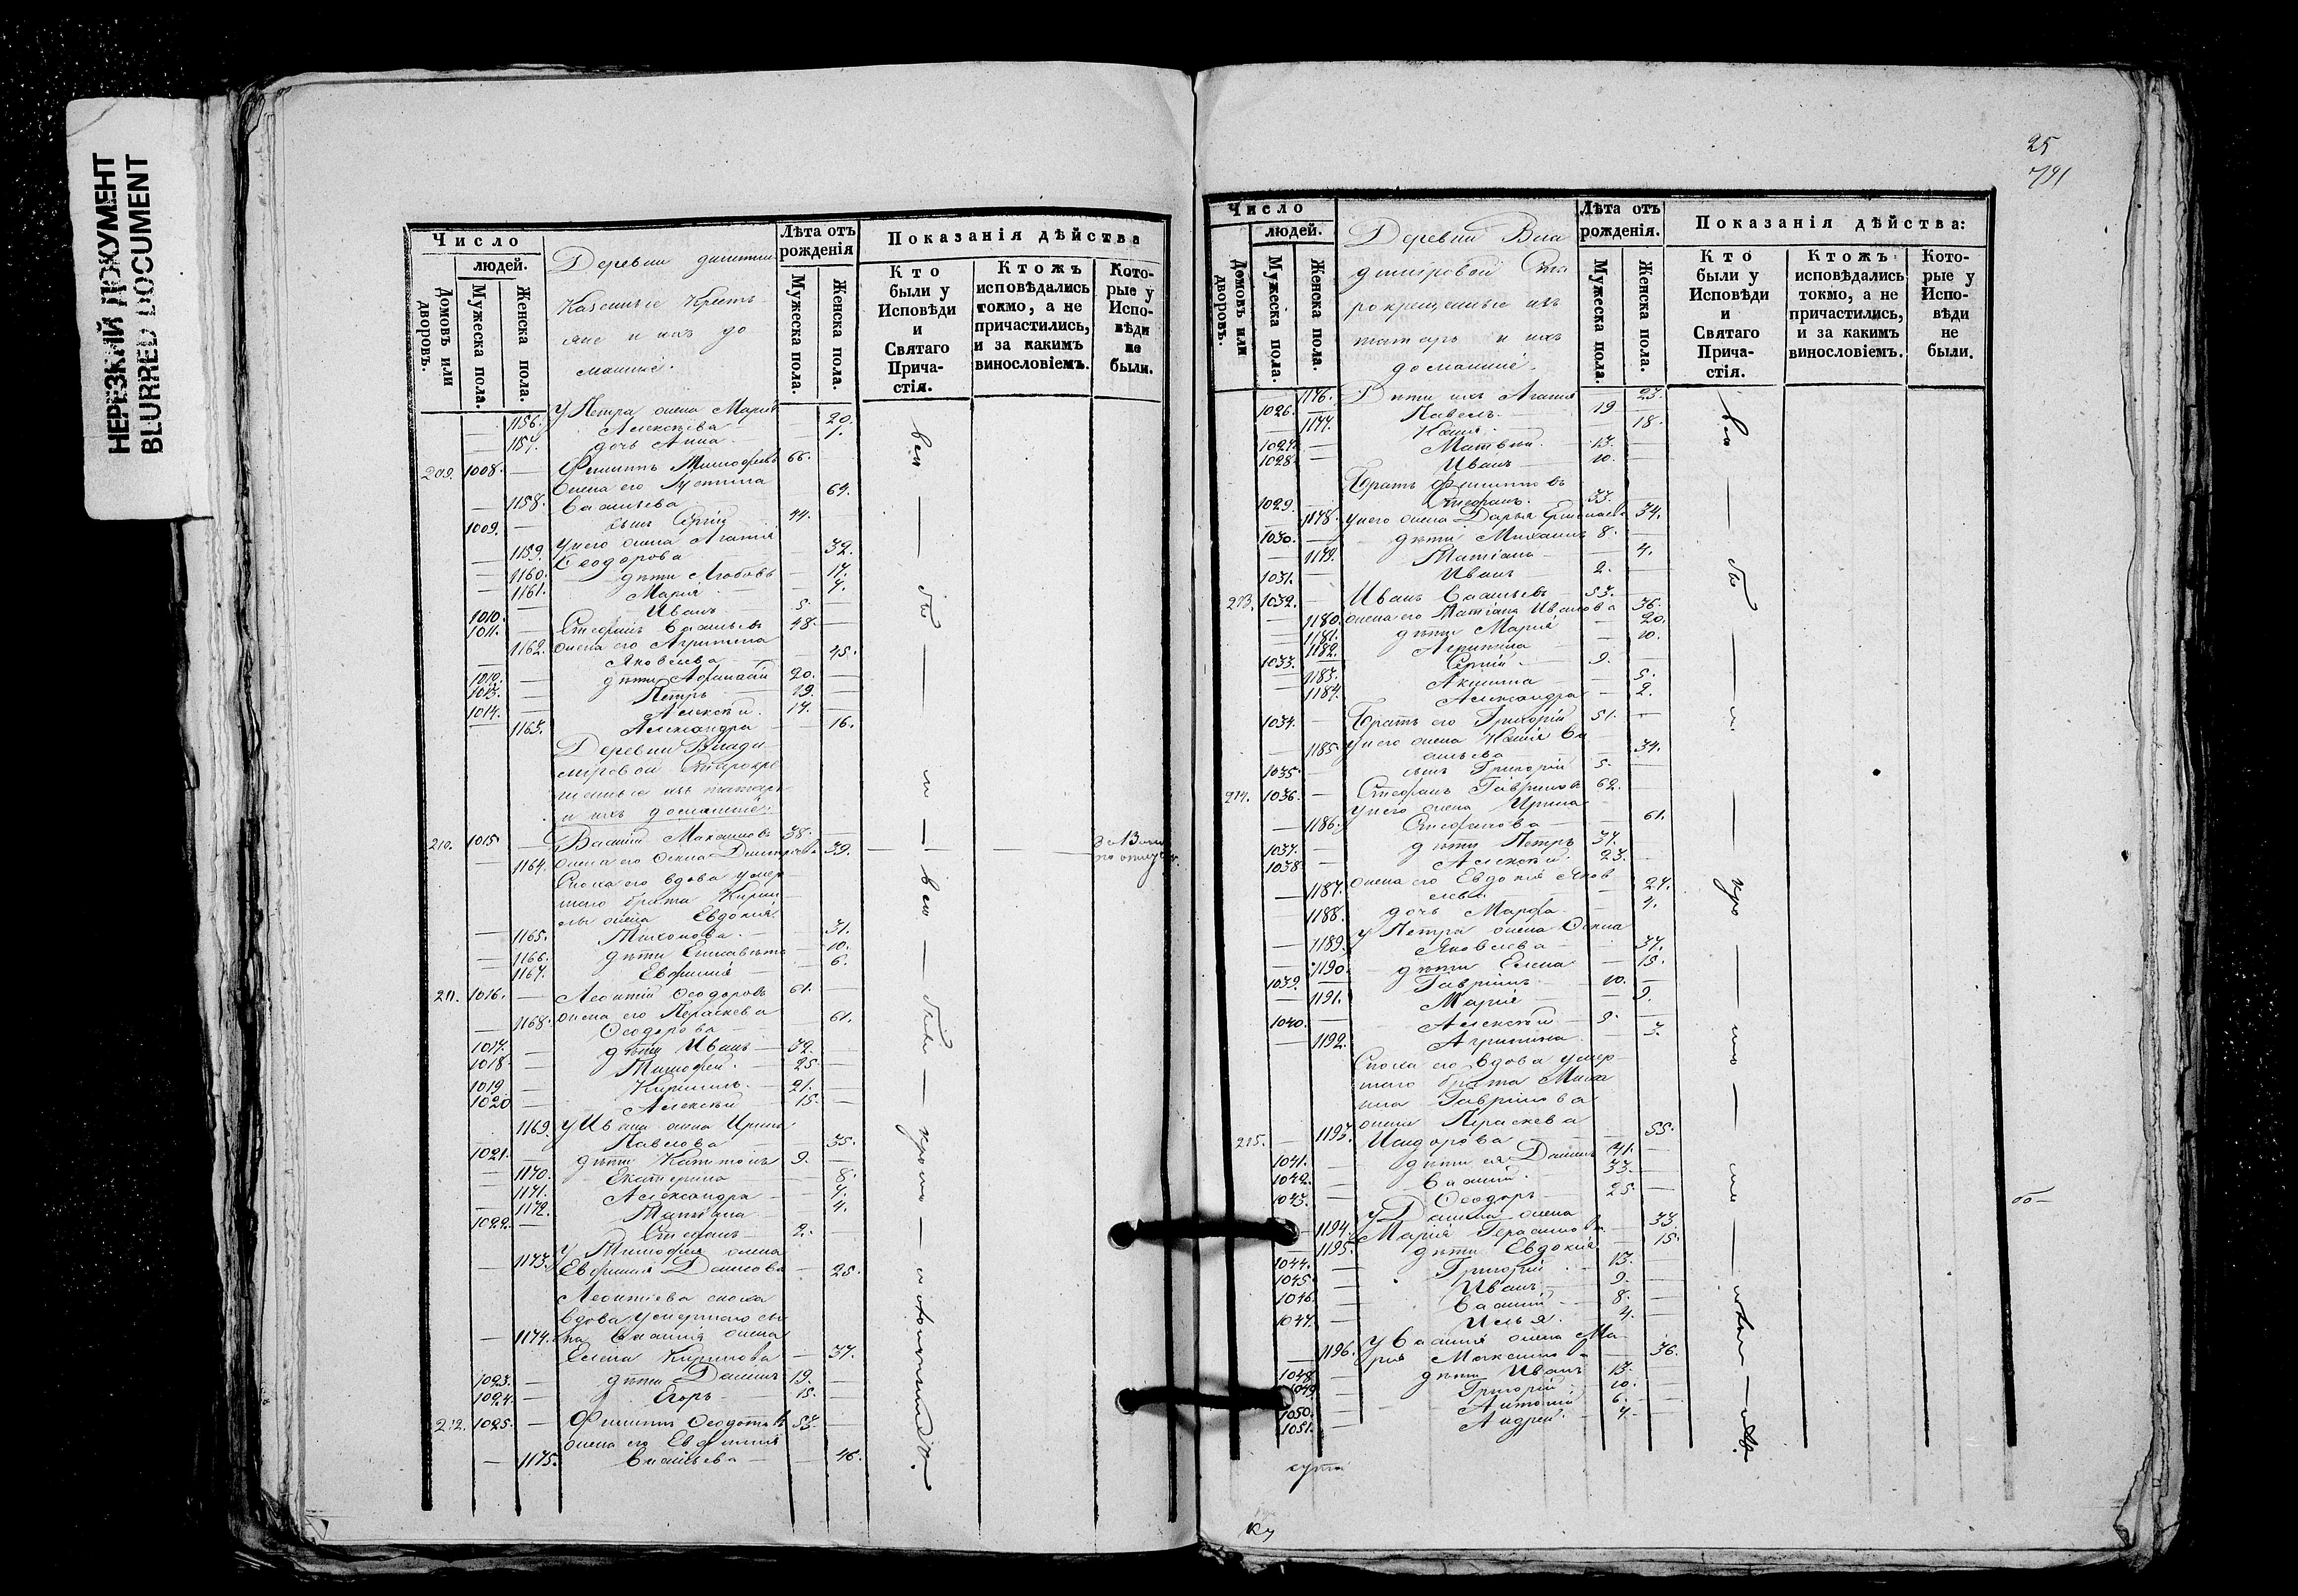 НЕРЕЗКИЙ ДОКУМЕНТ
BLURRED DOCUMENT
Число
людей.
Домовъ или дворовъ.
Мужеска пола.
Женска пола.
Деревни
Казенные Кресть-
яне и ихъ до
машніе.
Лѣта отъ рожденія
Мужеска пола.
Женска пола.
Показанія дѣйства
Кто были у Исповѣди и Святаго Прича-стія.
Ктожъ исповѣдались токмо, а не причастились, и за какимъ винословіемъ.
Кото-рые у Испо-вѣди не были.
1156. У Петра жена Марія
Алексѣева — 20.
— 1157. дочь Анна — 1.
209. 1008. — Филиппъ Тимофеевъ 66. —
жена его Устинья
— 1158. Васильева — 64.
1009. — сынъ Сергій 44. —
1159. у него жена Агафія
Ѳеодорова — 32.
— 1160. дѣти Любовь — 17.
— 1161. Марія — 7.
1010. — Иванъ 5. —
1011. — Стефанъ Васильевъ 48. —
1162. жена его Агрипина
— Яковлева — 45.
1012. — дѣти Афанасій 20. —
1013. — Петръ 19. —
1014. — Алексѣй. 14. —
— 1163. Александра — 16.
Деревни Влади-
міровой Старокре
щеные изъ татаръ
и ихъ домашніе:
210. 1015 — Василій Максимовъ 38. —
— 1164. жена его Ѳекла Дмитріева 39.
Сноха его вдова умер
шаго брата Кирил
лы жена Евдокія
— 1165. Тихонова. — 31.
— 1166. дѣти Елисавета — 10.
— 1167. Евфимія — 6.
211. 1016. — Леонтій Ѳеодоровъ 61. —
— 1168. жена его Параскева
Ѳеодорова — 61.
1017. — дѣти Иванъ — 32. —
1018. — Тимофей. — 25. —
1019. — Кириллъ. — 21. —
1020 — Алексѣй — 15. —
1169. У Ивана жена Ирина
Павлова — 35.
1021. — дѣти 9. —
— 1170. Екатерина — 8.
— 1171. Александра — 7.
— 1172. Татіана — 4.
1022. — Стефанъ — 2. —
У Тимофея жена
— 1173. Евфимія Данилова — 25.
Леонтіева сноха
вдова умершаго сы
— 1174. на Василія жена
Елена Кирилова — 37.
1023. — дѣти Даніилъ 19. —
1024. — Егоръ — 15. —
212. 1025. — Филиппъ Ѳедотовъ 53. —
жена его Евфимія
— 1175. Васильева — 46.
25
791
Число
людей.
Домовъ или дворовъ.
Мужеска пола.
Женска пола.
Деревни Вла
диміровой Ста
рокрещеные изъ
татаръ и ихъ
домашніе.
Лѣта отъ рожденія.
Мужеска пола.
Женска пола.
Показанія дѣйства:
Кто были у Исповѣди и Святаго Прича-стія.
Ктожъ исповѣдались токмо, а не причастились, и за какимъ винословіемъ.
Кото-рые у Испо-вѣди не были.
1176. Дѣти ихъ Агафія — 23.
1026. — Павелъ. 19 —
— 1177. Ксенія — 18.
1027. — Матвѣй. — 13. —
1028. — Иванъ — 10. —
Братъ Филипповъ
1029. — Стефанъ. — 33. —
— 1178. у него жена Дарья 34.
1030. — дѣти Михаилъ 8. —
— 1179. Татіана — 4.
1031. — Иванъ — 2. —
213. 1032. — Иванъ Васильевъ — 53. —
— 1180. жена его Татіана Иванова 36.
— 1181. дѣти Марія — 20.
— 1182. Агрипина — 10.
1033. — Сергій — 9. —
— 1183. Акилина — 5.
— 1184. Александра — 2.
1034. — Братъ его Григорій 51. —
— 1185. у него жена Ксенія Ва
сильева — 34.
1035. — сынъ Григорій 5. —
214. 1036. — Стефанъ Гавриловъ 62. —
у него жена Ирина
— 1186. Стефанова — 61.
1037. — дѣти Петръ 37. —
1038. — Алексѣй. 23. —
— 1187. жена его Евдокія Яков
лева — 27.
— 1188. дочь Марфа. — 4.
у Петра жена Ѳекла
— 1189. Яковлева — 37.
— 1190. дѣти Елена — 15.
1039. — Гавріилъ 10. —
— 1191. Марія — 9.
1040. — Алексѣй — 9. —
— 1192. Агрипина — 3.
Сноха его вдова умер
шаго брата Миха
ила Гаврилова
жена Параскева
215. — 1193. Исидорова — 55.
1041. — дѣти ея Даніилъ 41. —
1042. — Василій. 33. —
1043. — Ѳеодоръ 25. —
У Даніила жена
— 1194. Марія Герасимова — 33.
— 1195. дѣти Евдокія — 15.
1044. — Григорій 13. —
1045. — Иванъ 9. —
1046. — Василій — 8. —
1047. — Илья. 4. —
У Василія жена Ма-
— 1196. рія Максимова — 36.
1048. — дѣти Иванъ 13. —
1049. — Григорій 10. —
1050. — Антоній 6. —
1051. — Андрей. 4. —